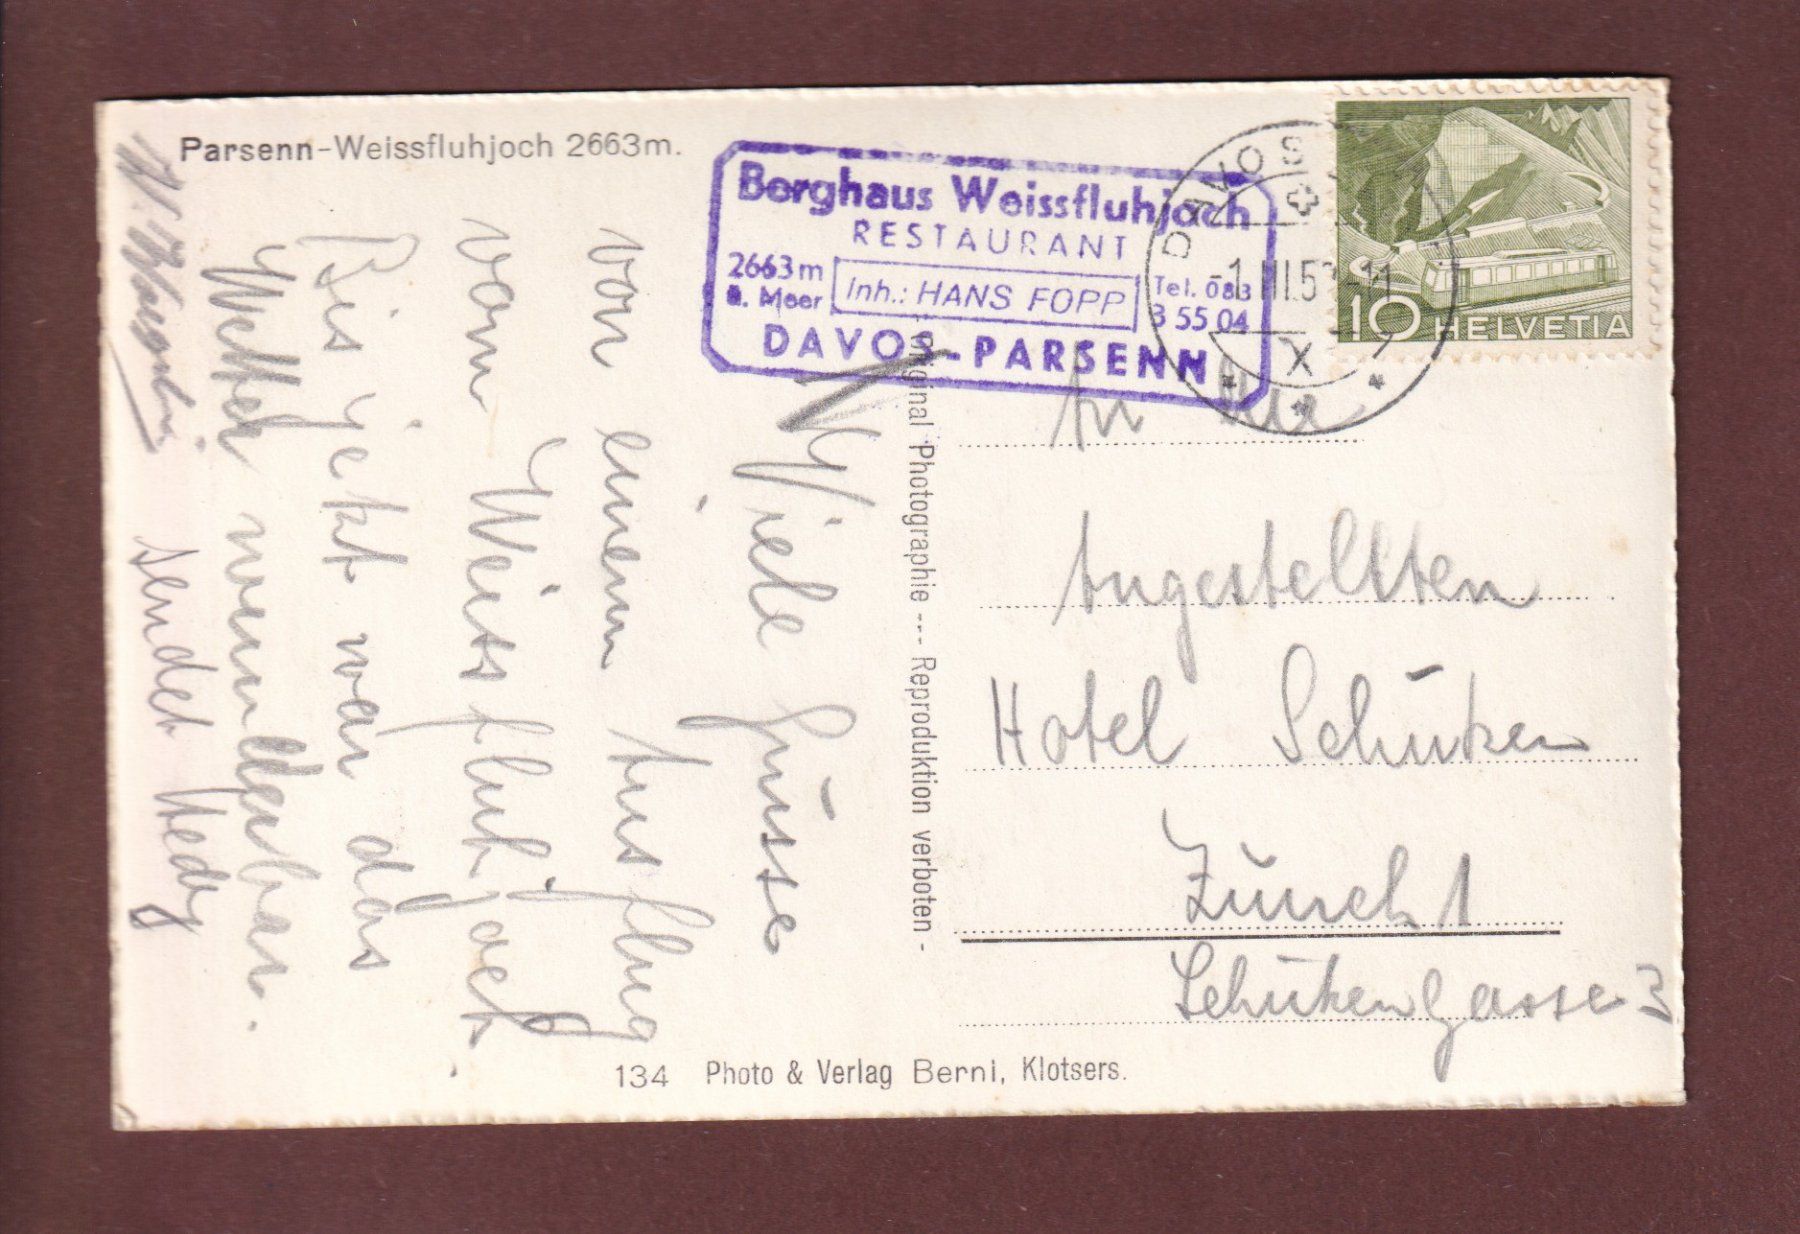 Parsenn-Weissfluhjoch 2663m.
Berghaus Weissfluhjoch
RESTAURANT
2663 m
ü. Meer
Inh.: HANS FOPP
Tel. 083
3 55 04
DAVOS-PARSENN
DAVOS
-1.III.5 -11
X
10 HELVETIA
Viele Grüsse
von einem Ausflug
vom Weissfluhjoch
Bis jetzt war das
Wetter wunderbar.
sendet Hedy
Original Photographie --- Reproduktion verboten -
An die
Angestellten
Hotel Schützen
Zürich 1
Schützengasse 3
134 Photo & Verlag Berni, Klotsers.